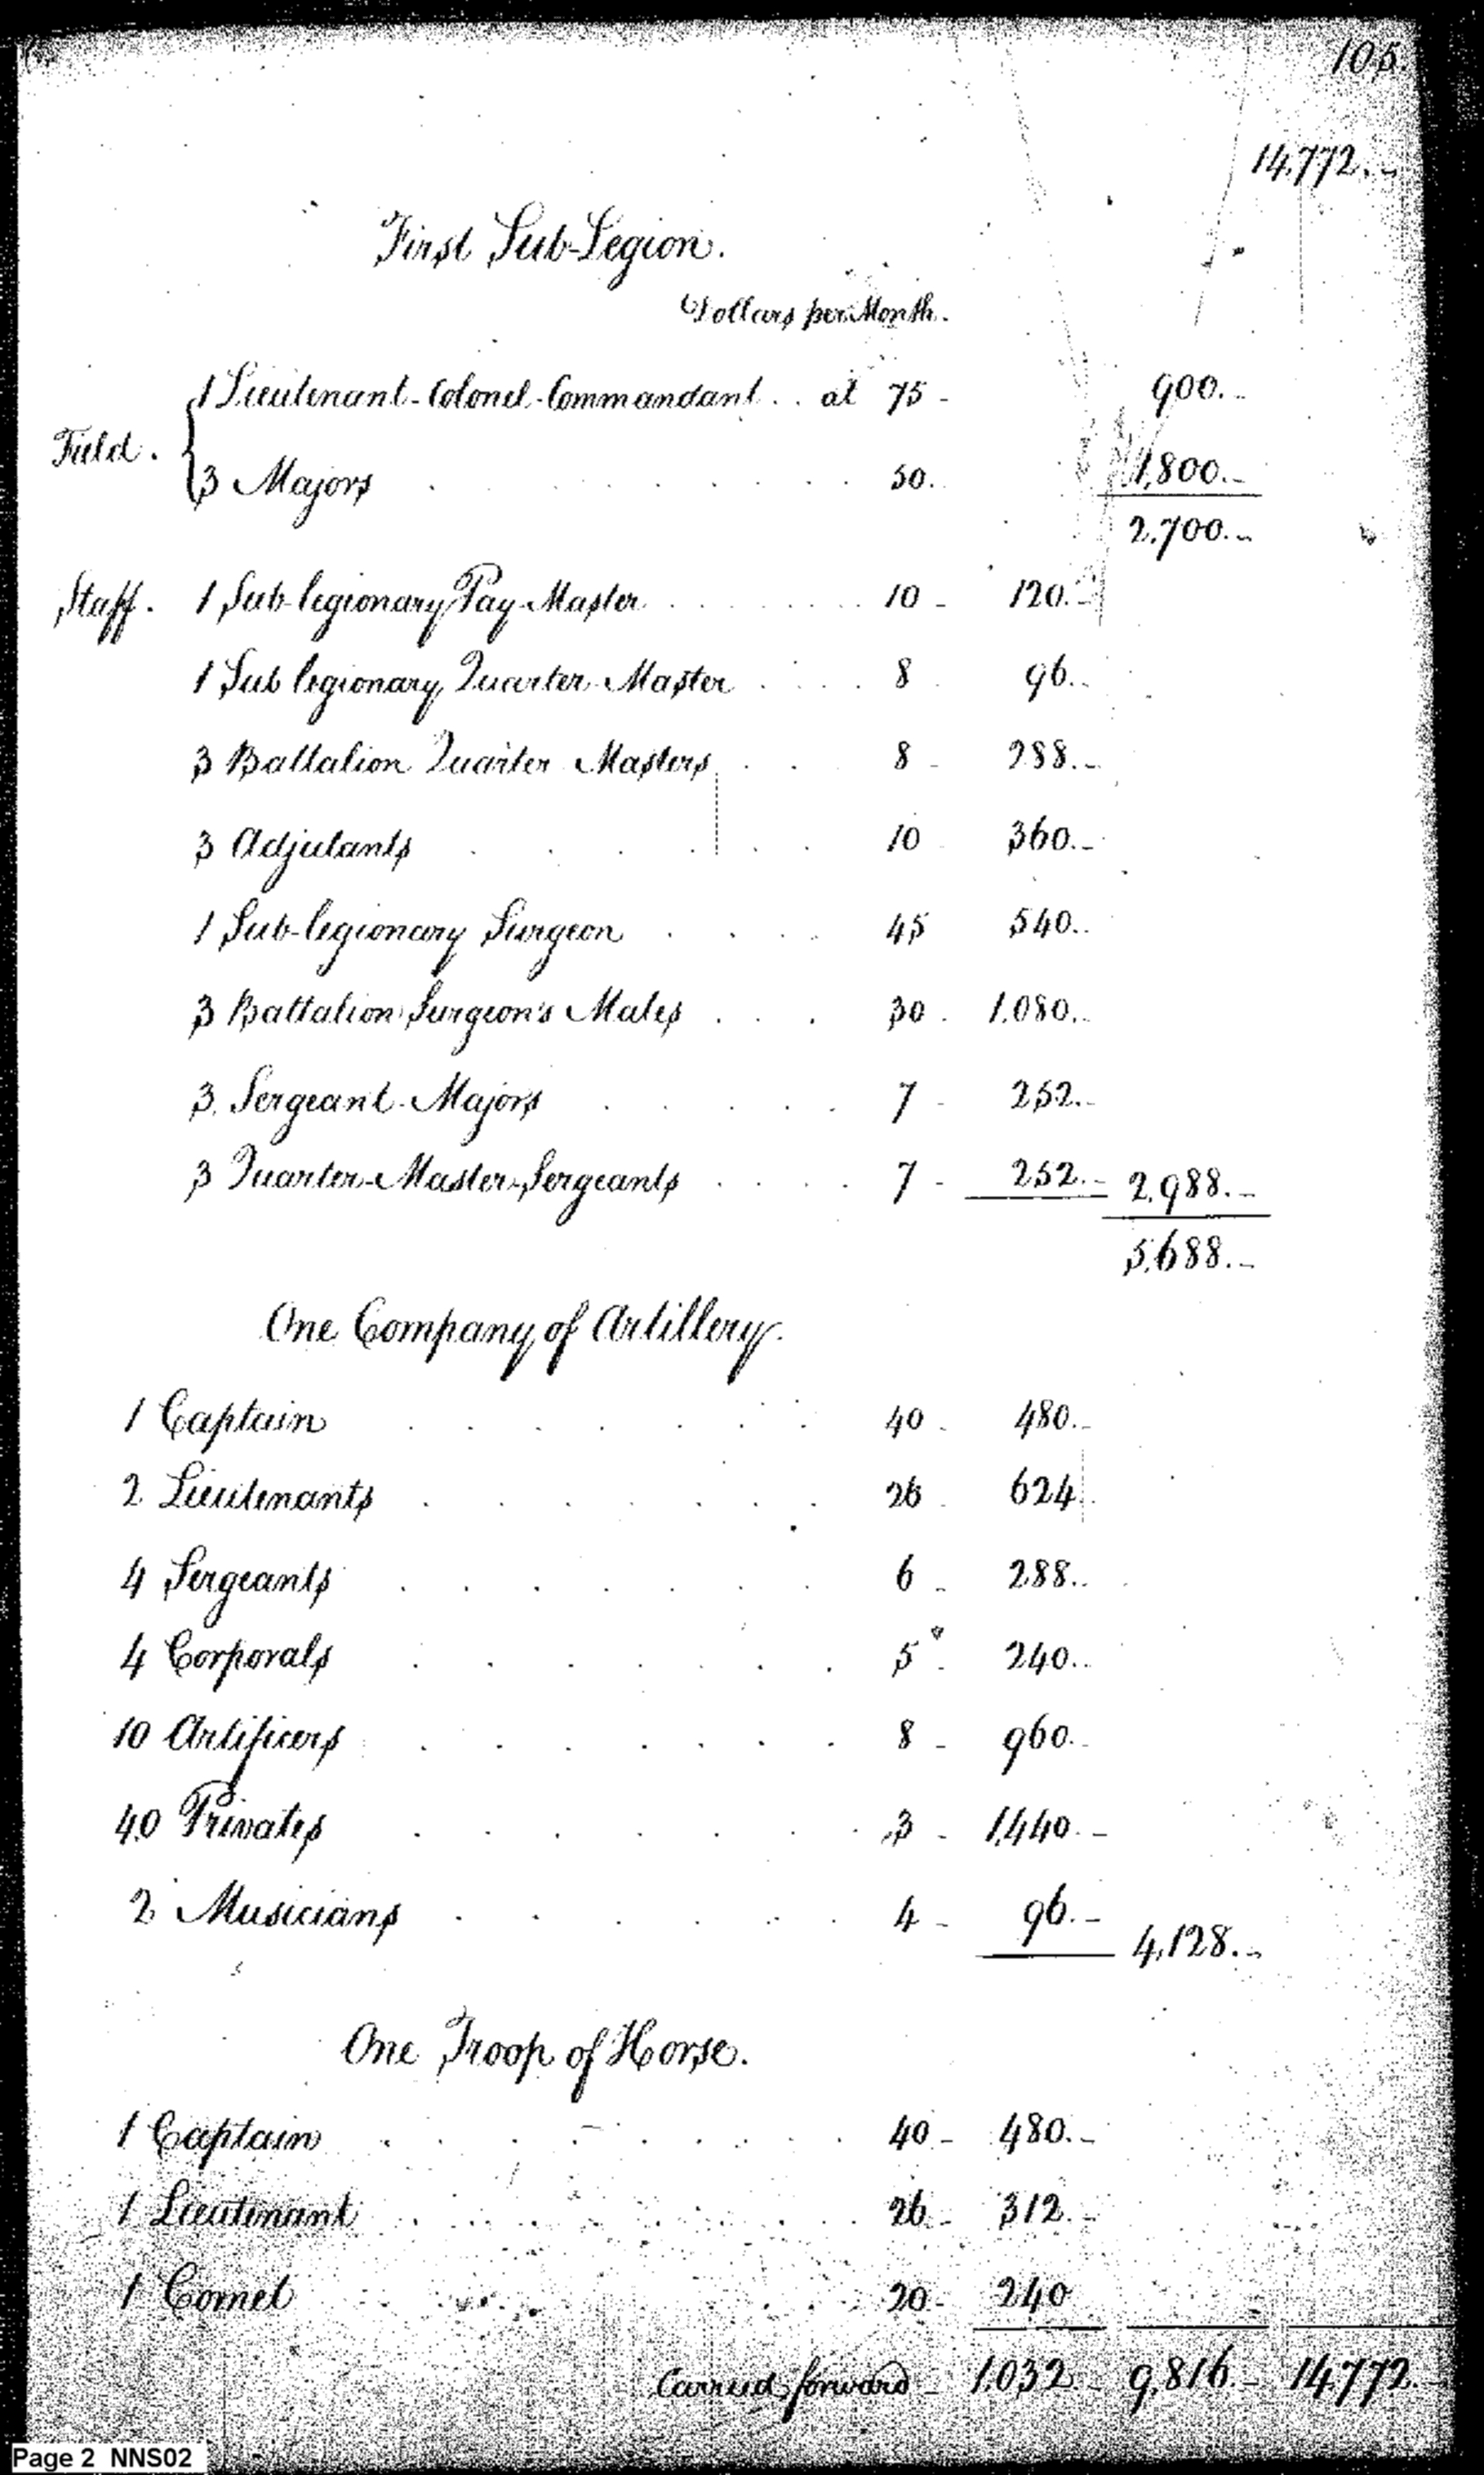 105.
14,772.-
First Sub-Legion.
Dollars per Month.
Field. 1 Lieutenant-Colonel-Commandant . . at 75 - 900.-
3 Majors . . . . . . . . 50. 1,800.-
2,700.-
Staff. 1 Sub-legionary Pay-Master . . . . . . . 10 - 120.-
1 Sub legionary Quarter-Master . . . . 8 96.-
3 Battalion Quarter Masters . . 8 - 288.-
3 Adjutants . . . . . . 10 360.-
1 Sub-legionary Surgeon . . . . 45 540.-
3 Battalion Surgeon's Mates . . . 30 - 1,080.-
3 Sergeant-Majors . . . . . 7 - 252.-
3 Quarter-Master-Sergeants . . . . 7 - 252.- 2,988.-
5,688.-
One Company of Artillery.
1 Captain . . . . . . . 40 - 480.-
2 Lieutenants . . . . . . . 26 - 624.
4 Sergeants . . . . . . . 6 - 288.-
4 Corporals . . . . . . . 5 - 240.-
10 Artificers . . . . . . . 8 - 960.-
40 Privates . . . . . . . 3 - 1,440.-
2 Musicians . . . . . . 4 - 96.- 4,128.-
One Troop of Horse.
1 Captain . . . . . . . . 40 - 480.-
1 Lieutenant . . . . . . . . 26 - 312.-
1 Cornet . . . . . . . 20 - 240
Carried forward - 1,032 - 9,816.- 14,772.-
Page 2 NNS02